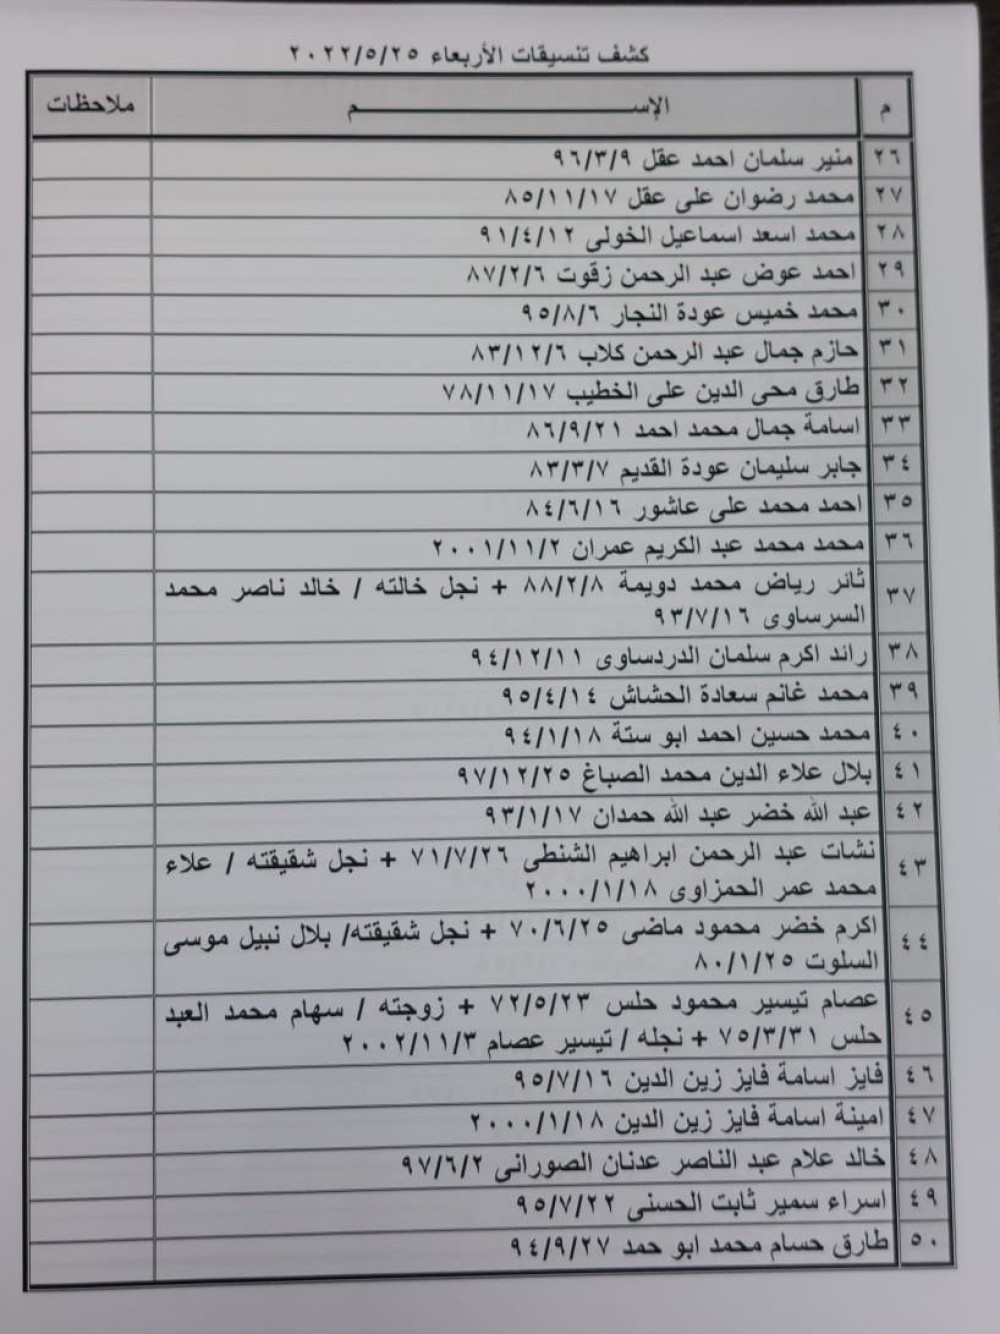 كشف تنسيقات الأربعاء ٢٠٢٢/٥/٢٥
م الإســـــــــــم ملاحظات
٢٦ منير سلمان احمد عقل ٩٦/٣/٩
٢٧ محمد رضوان على عقل ٨٥/١١/١٧
٢٨ محمد اسعد اسماعيل الخولى ٩١/٤/١٢
٢٩ احمد عوض عبد الرحمن زقوت ٨٧/٢/٦
٣٠ محمد خميس عودة النجار ٩٥/٨/٦
٣١ حازم جمال عبد الرحمن كلاب ٨٣/١٢/٦
٣٢ طارق محى الدين على الخطيب ٧٨/١١/١٧
٣٣ اسامة جمال محمد احمد ٨٦/٩/٢١
٣٤ جابر سليمان عودة القديم ٨٣/٣/٧
٣٥ احمد محمد على عاشور ٨٤/٦/١٦
٣٦ محمد محمد عبد الكريم عمران ٢٠٠١/١١/٢
٣٧ ثائر رياض محمد دويمة ٨٨/٢/٨ + نجل خالته / خالد ناصر محمد
السرساوى ٩٣/٧/١٦
٣٨ رائد اكرم سلمان الدردساوى ٩٤/١٢/١١
٣٩ محمد غانم سعادة الحشاش ٩٥/٤/١٤
٤٠ محمد حسين احمد ابو ستة ٩٤/١/١٨
٤١ بلال علاء الدين محمد الصباغ ٩٧/١٢/٢٥
٤٢ عبد الله خضر عبد الله حمدان ٩٣/١/١٧
٤٣ نشات عبد الرحمن ابراهيم الشنطى ٧١/٧/٢٦ + نجل شقيقته / علاء
محمد عمر الحمزاوى ٢٠٠٠/١/١٨
٤٤ اكرم خضر محمود ماضى ٧٠/٦/٢٥ + نجل شقيقته/ بلال نبيل موسى
السلوت ٨٠/١/٢٥
٤٥ عصام تيسير محمود حلس ٧٢/٥/٢٣ + زوجته / سهام محمد العبد
حلس ٧٥/٣/٣١ + نجله / تيسير عصام ٢٠٠٢/١١/٣
٤٦ فايز اسامة فايز زين الدين ٩٥/٧/١٦
٤٧ امينة اسامة فايز زين الدين ٢٠٠٠/١/١٨
٤٨ خالد علام عبد الناصر عدنان الصورانى ٩٧/٦/٢
٤٩ اسراء سمير ثابت الحسنى ٩٥/٧/٢٢
٥٠ طارق حسام محمد ابو حمد ٩٤/٩/٢٧